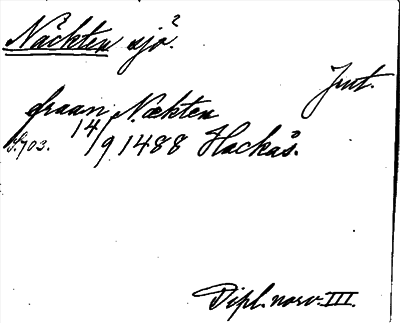 Näckten sjö.
Jmt.
fraan Næckten
S. 703. 14/9 1488 Hackås.
Dipl. norv. III.